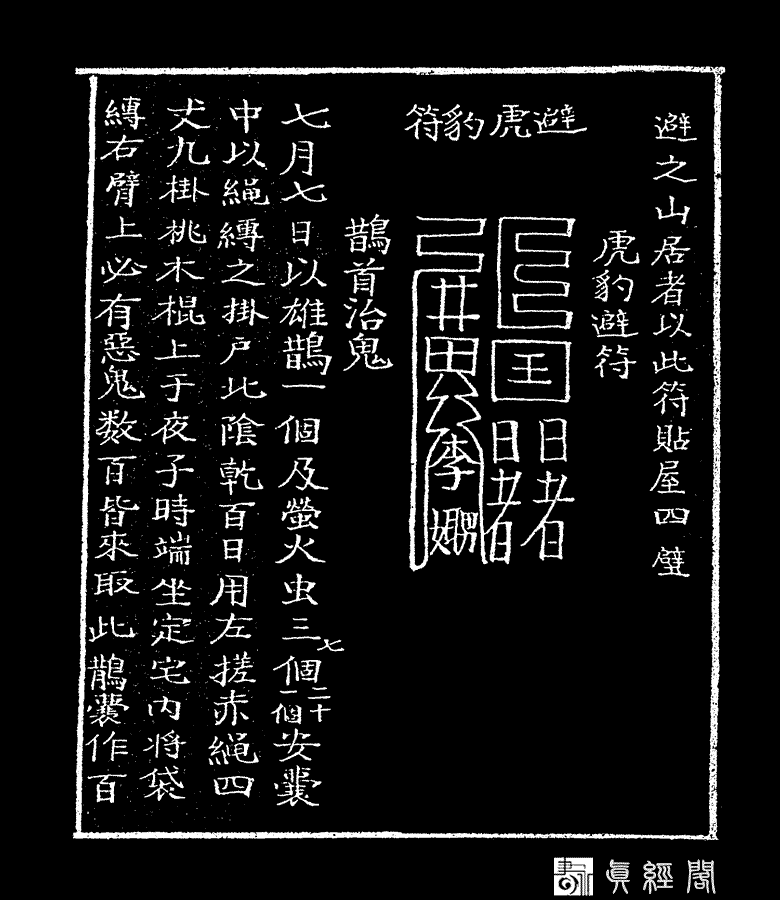 避之山居者以此符貼屋四壁
虎豹避符
避虎豹符
鵲首治鬼
七月七日以雄鵲一個及螢火虫三七個二十一個安囊
中以繩縛之掛戶北陰乾百日用左搓赤繩四
丈九掛桃木棍上于夜子時端坐定宅内将袋
縛右臂上必有惡鬼数百皆來取此鵲囊作百
眞經閣